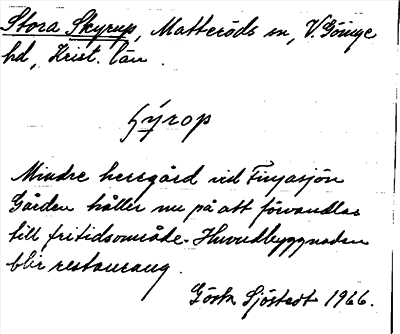 Stora Skyrup, Matteröds sn, V. Göinge
hd, Krist. län.
Sýrop
Mindre herrgård vid Finjasjön
Gården håller nu på att förvandlas
till fritidsområde. Huvudbyggnaden
blir restaurang.
Gösta Sjöstedt 1966.